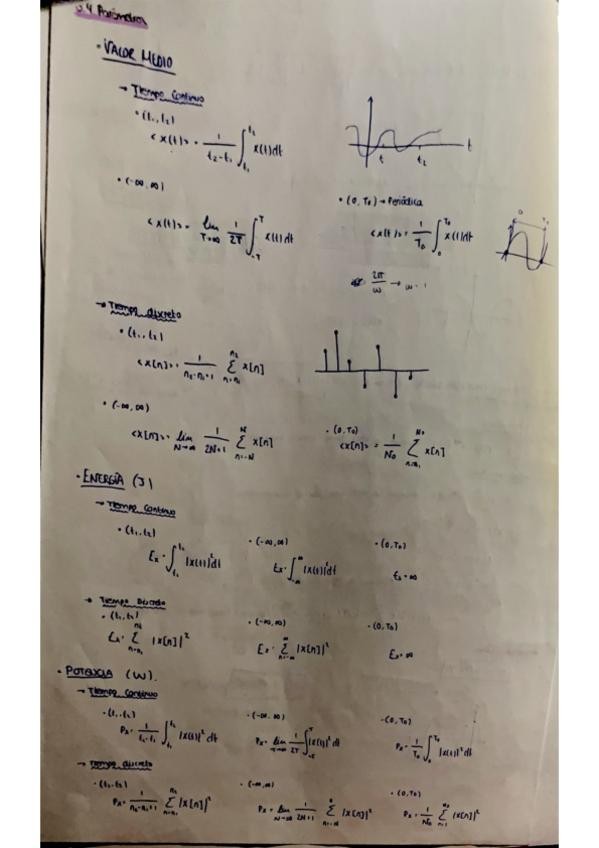 0.4 Parámetros
· VALOR MEDIO
→ Tiempo Continuo
• (t₁, t₂)
<x(t)> = 1/(t₂-t₁) ∫_{t₁}^{t₂} x(t)dt
t t₂ t
• (-∞, ∞)
<x(t)> = lim_{T→∞} 1/2T ∫_{-T}^{T} x(t)dt
• (0, T₀) → Periódica
<x(t)> = 1/T₀ ∫_{0}^{T₀} x(t)dt
2π/ω →
→ Tiempo discreto
• (t₁, t₂)
<x[n]> = 1/(n₂-n₁+1) Σ_{n=n₁}^{n₂} x[n]
• (-∞, ∞)
<x[n]> = lim_{N→∞} 1/(2N+1) Σ_{n=-N}^{N} x[n]
· (0, T₀)
<x[n]> = 1/N₀ Σ^{N₀} x[n]
· ENERGÍA (J)
→ Tiempo Continuo
• (t₁, t₂)
Eₓ = ∫_{t₁}^{t₂} |x(t)|²dt
• (-∞, ∞)
Eₓ = ∫_{-∞}^{∞} |x(t)|²dt
• (0, T₀)
Eₓ = ∞
→ Tiempo Discreto
• (t₁, t₂)
Eₓ = Σ_{n=n₁} |x[n]|²
· (-∞, ∞)
Eₓ = Σ_{n=-∞}^{∞} |x[n]|²
· (0, T₀)
Eₓ = ∞
· POTENCIA (W).
→ Tiempo Continuo
· (t₁, t₂)
Pₓ = 1/(t₂-t₁) ∫_{t₁}^{t₂} |x(t)|² dt
· (-∞, ∞)
Pₓ = lim_{T→∞} 1/2T ∫_{-T}^{T} |x(t)|² dt
· (0, T₀)
Pₓ = 1/T₀ ∫_{0}^{T₀} |x(t)|² dt
→ Tiempo discreto
· (t₁, t₂)
Pₓ = 1/(n₂-n₁+1) Σ_{n=n₁}^{n₂} |x[n]|²
· (-∞, ∞)
Pₓ = lim_{N→∞} 1/(2N+1) Σ_{n=-N} |x[n]|²
· (0, T₀)
Pₓ = 1/N₀ Σ_{n=1}^{N₀} |x[n]|²